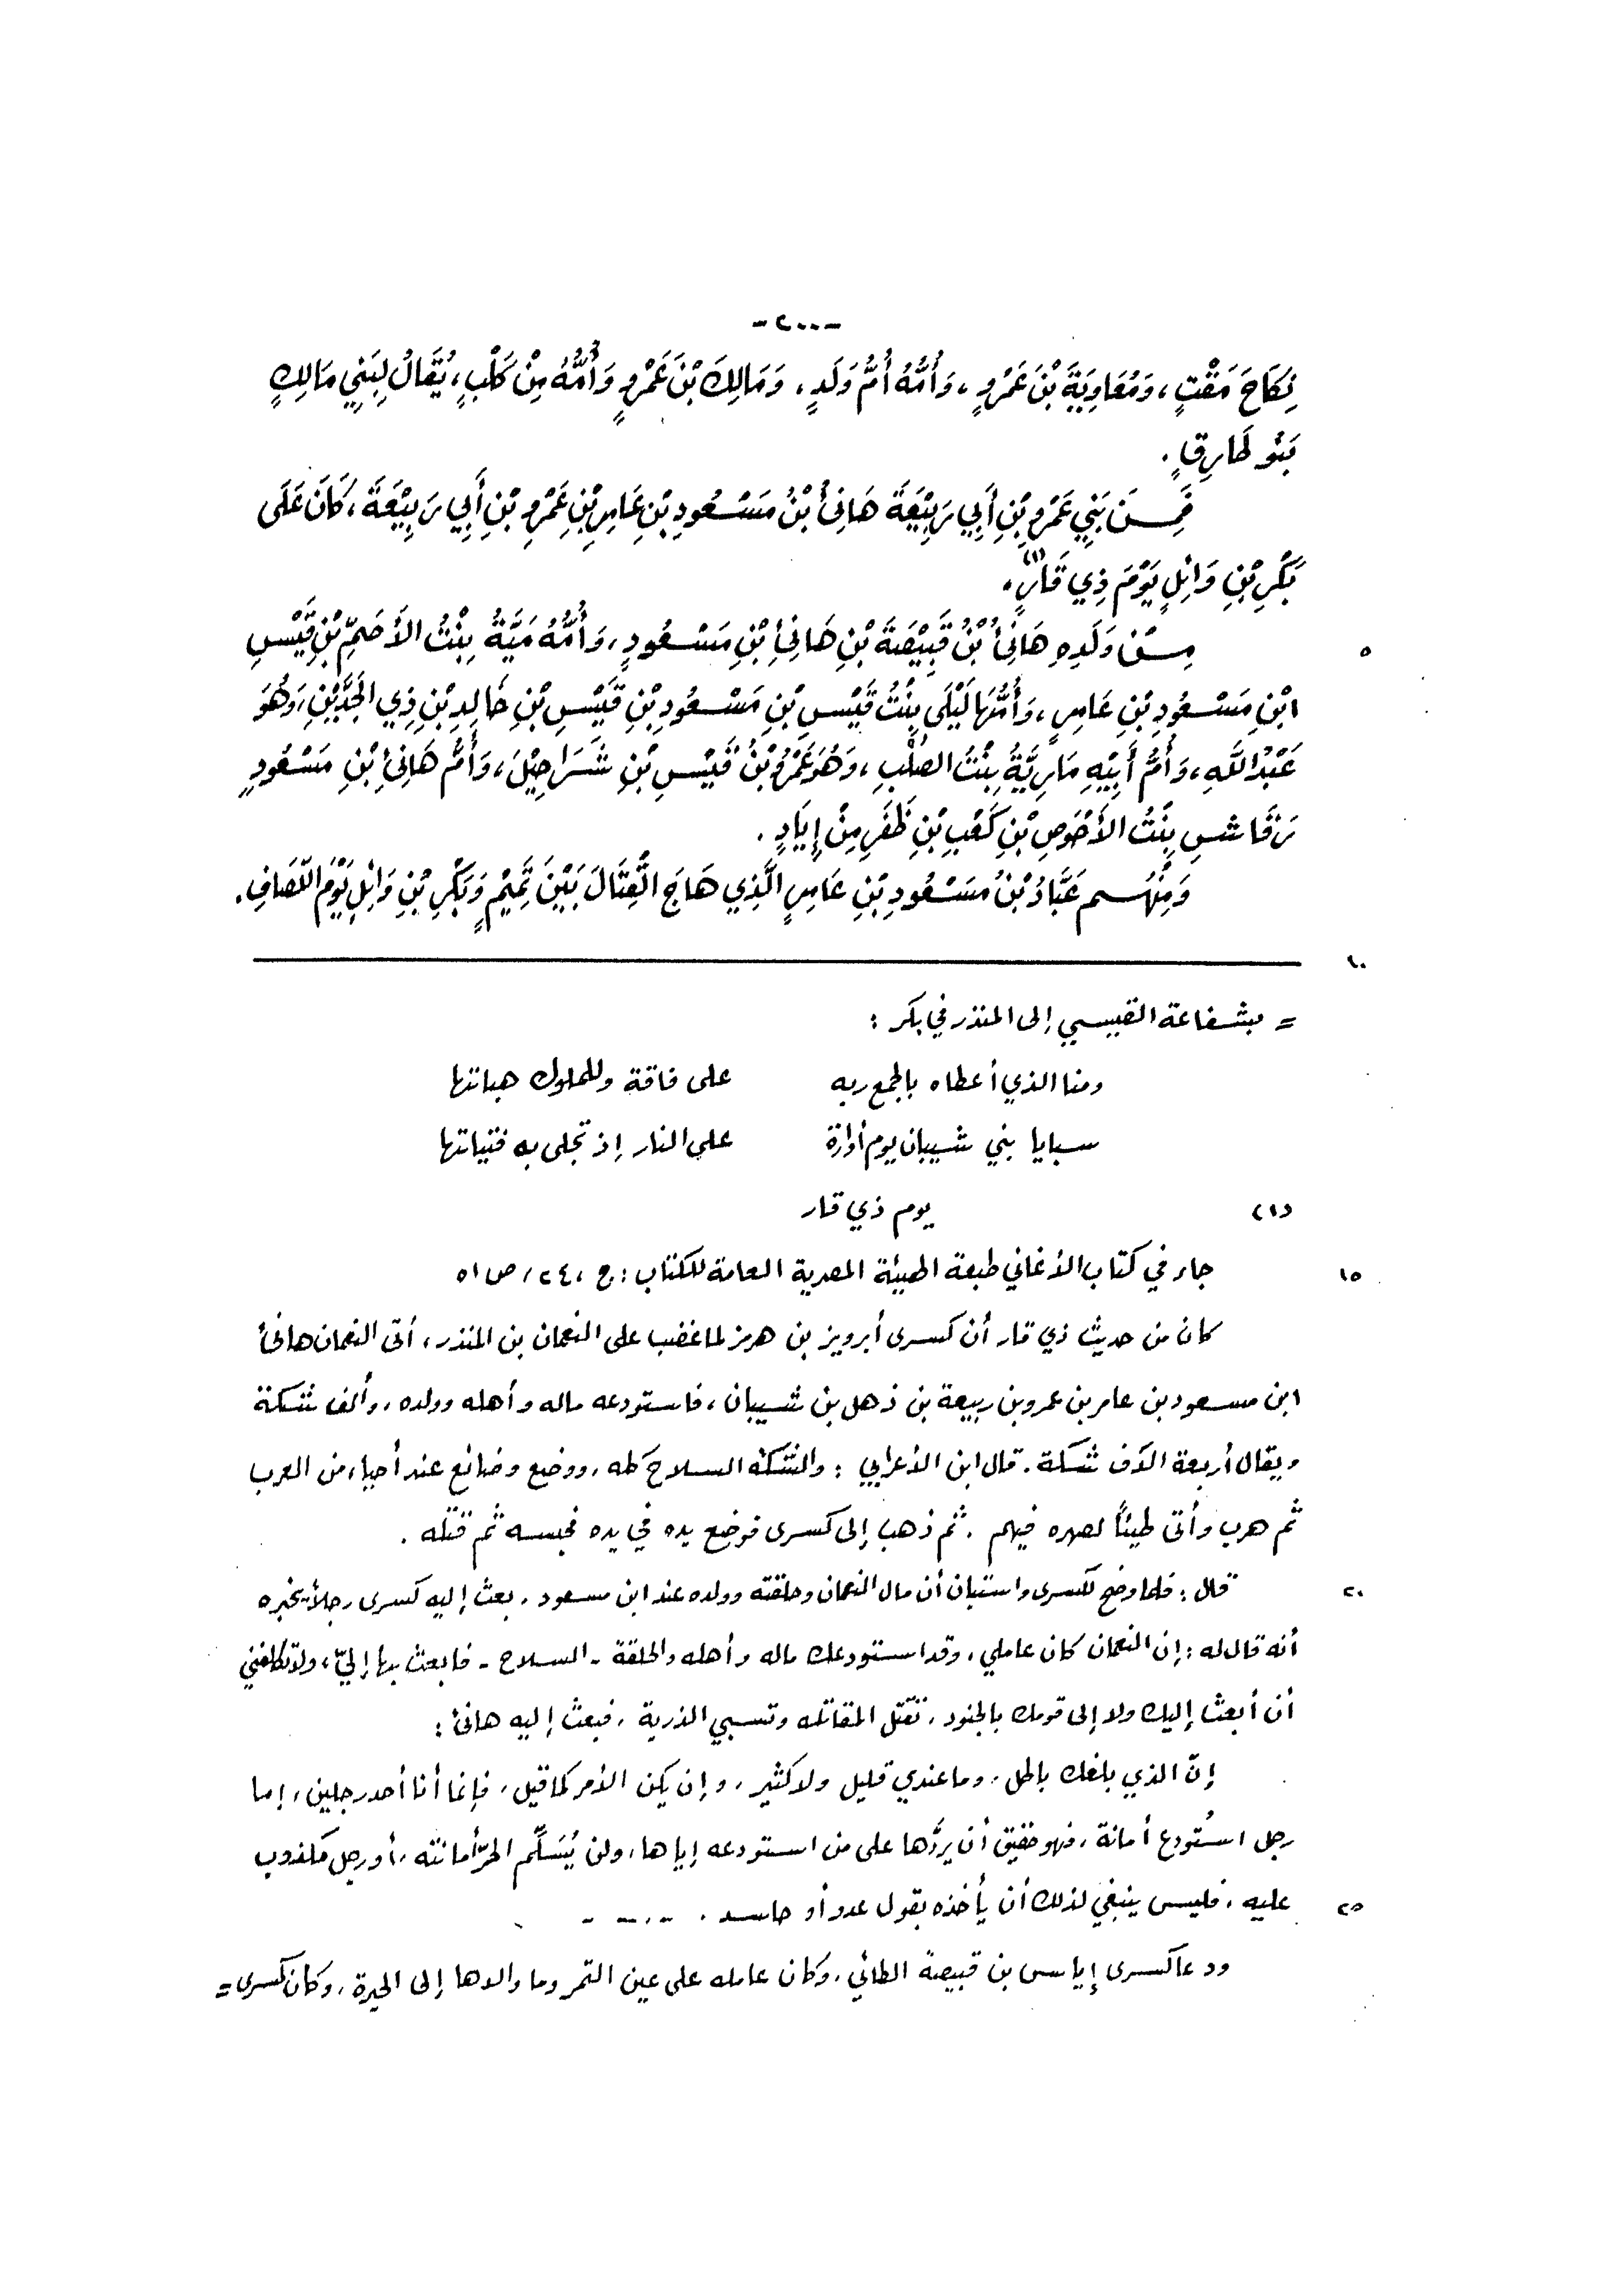 -٢٠٠-
نِكَاحَ مَقْتٍ، وَمُعَاوِيَةَ بْنَ عَمْرٍو، وَأُمُّهُ أُمُّ وَلَدٍ، وَمَالِكَ بْنَ عَمْرٍو وَأُمُّهُ مِنْ كَلْبٍ، يُقَالُ لِبَنِي مَالِكٍ
بَنُو طَارِقٍ.
فَمِنْ بَنِي عَمْرِو بْنِ أَبِي رَبِيْعَةَ هَانِئُ بْنُ مَسْعُودِ بْنِ عَامِرِ بْنِ عَمْرِو بْنِ أَبِي رَبِيْعَةَ، كَانَ عَلَى
بَكْرِ بْنِ وَائِلٍ يَوْمَ ذِي قَارٍ(١).
٥ مِنْ وَلَدِهِ هَانِئُ بْنُ قَبِيْصَةَ بْنِ هَانِئِ بْنِ مَسْعُودٍ، وَأُمُّهُ مَيَّةُ بِنْتُ الأَصَمِّ بْنِ قَيْسِ
ابْنِ مَسْعُودِ بْنِ عَامِرٍ، وَأُمُّهَا لَيْلَى بِنْتُ قَيْسِ بْنِ مَسْعُودِ بْنِ قَيْسِ بْنِ خَالِدِ بْنِ ذِي الجَدَّيْنِ، وَهُوَ
عَبْدُ اللَّهِ، وَأُمُّ أَبِيْهِ مَارِيَّةُ بِنْتُ الصُلْبِ، وَهُوَ عَمْرُو بْنُ قَيْسِ بْنِ شَرَاحِيْلَ، وَأُمُّ هَانِئِ بْنِ مَسْعُودٍ
رَقَاشِ بِنْتُ الأَحْوَصِ بْنِ كَعْبِ بْنِ ظَفَرٍ مِنْ إِيَادٍ.
وَمِنْهُم عَبَّادُ بْنُ مَسْعُودِ بْنِ عَامِرٍ الَّذِي هَاجَ القِتَالَ بَيْنَ تَمِيْمٍ وَبَكْرِ بْنِ وَائِلٍ يَوْمَ اللّصَافِ.
١٠
= بشفاعة القيسي إلى المنذر في بكر :
ومنا الذي أعطاه بالجمع ربه على فاقة وللملوك هباتها
سبايا بني شيبان يوم أوارة على النار إذ تجلى به فتياتها
(١) يوم ذي قار
١٥ جاء في كتاب الأغاني طبعة الهيئة المصرية العامة للكتاب : ج ، ٢٤ ، ص ٥١
كان من حديث ذي قار أن كسرى أبرويز بن هرمز لما غضب على النعمان بن المنذر، أتى النعمان هانئ
ابن مسعود بن عامر بن عمرو بن ربيعة بن ذهل بن شيبان، فاستودعه ماله وأهله وولده، وألف شكة
ويقال أربعة آلاف شكة. قال ابن الأعرابي : والشكة السلاح كله، ووضع وضائع عند أحياء من العرب
ثم هرب وأتى طيئاً لصهره فيهم . ثم ذهب إلى كسرى فوضع يده في يده فحبسه ثم قتله .
٢٠ قال : فلما وضح لكسرى واستبان أن مال النعمان وحلقته وولده عند ابن مسعود . بعث إليه كسرى رجلاً يخبره
أنه قال له : إن النعمان كان عاملي، وقد استودعك ماله وأهله والحلقة - السلاح - فابعث بها إليّ، ولا تكلفني
أن أبعث إليك ولا إلى قومك بالجنود، تقتل المقاتلة وتسبي الذرية . فبعث إليه هانئ :
إنّ الذي بلغك باطل، وما عندي قليل ولا كثير، وإن يكن الأمر كما قيل، فإنما أنا أحد رجلين، إما
رجل استُودع أمانة، فهو حقيق أن يردَّها على من استودعه إياها، ولن يُسَلِّم الحرّ أمانته، أو رجل مكذوب
٢٥ عليه . فليس ينبغي لذلك أن يأخذه بقول عدو أو حاسد . - . - -
ودعا كسرى إياس بن قبيصة الطائي . وكان عامله على عين التمر وما والاها إلى الحيرة، وكان كسرى =